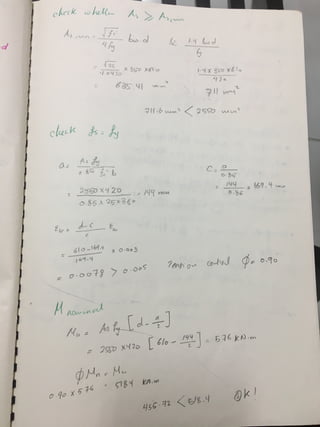 check whether As ≥ As,min
As,min = √fc' / 4fy bw d & 1.4 bw d / fy
= √25 / 4×420 × 350 × 610 1.4 × 350 × 610 / 420
= 635.41 mm² 711 mm²
711.6 mm² < 2550 mm²
check fs = fy
a = As fy / 0.85 fc' b C = a / 0.85
= 2550 × 420 / 0.85 × 25 × 350 = 144 mm = 144 / 0.85 = 169.4 mm
Et = d-c / c Eu
= 610-169.4 / 169.4 × 0.003
= 0.0078 > 0.005 Tension control Ø = 0.90
M nominal
Mn = As fy [d - a/2]
= 2550 × 420 [610 - 144/2] = 576 KN.m
Ø Mn = Mu
0.90 × 576 = 518.4 KN.m
456.72 < 518.4 OK!